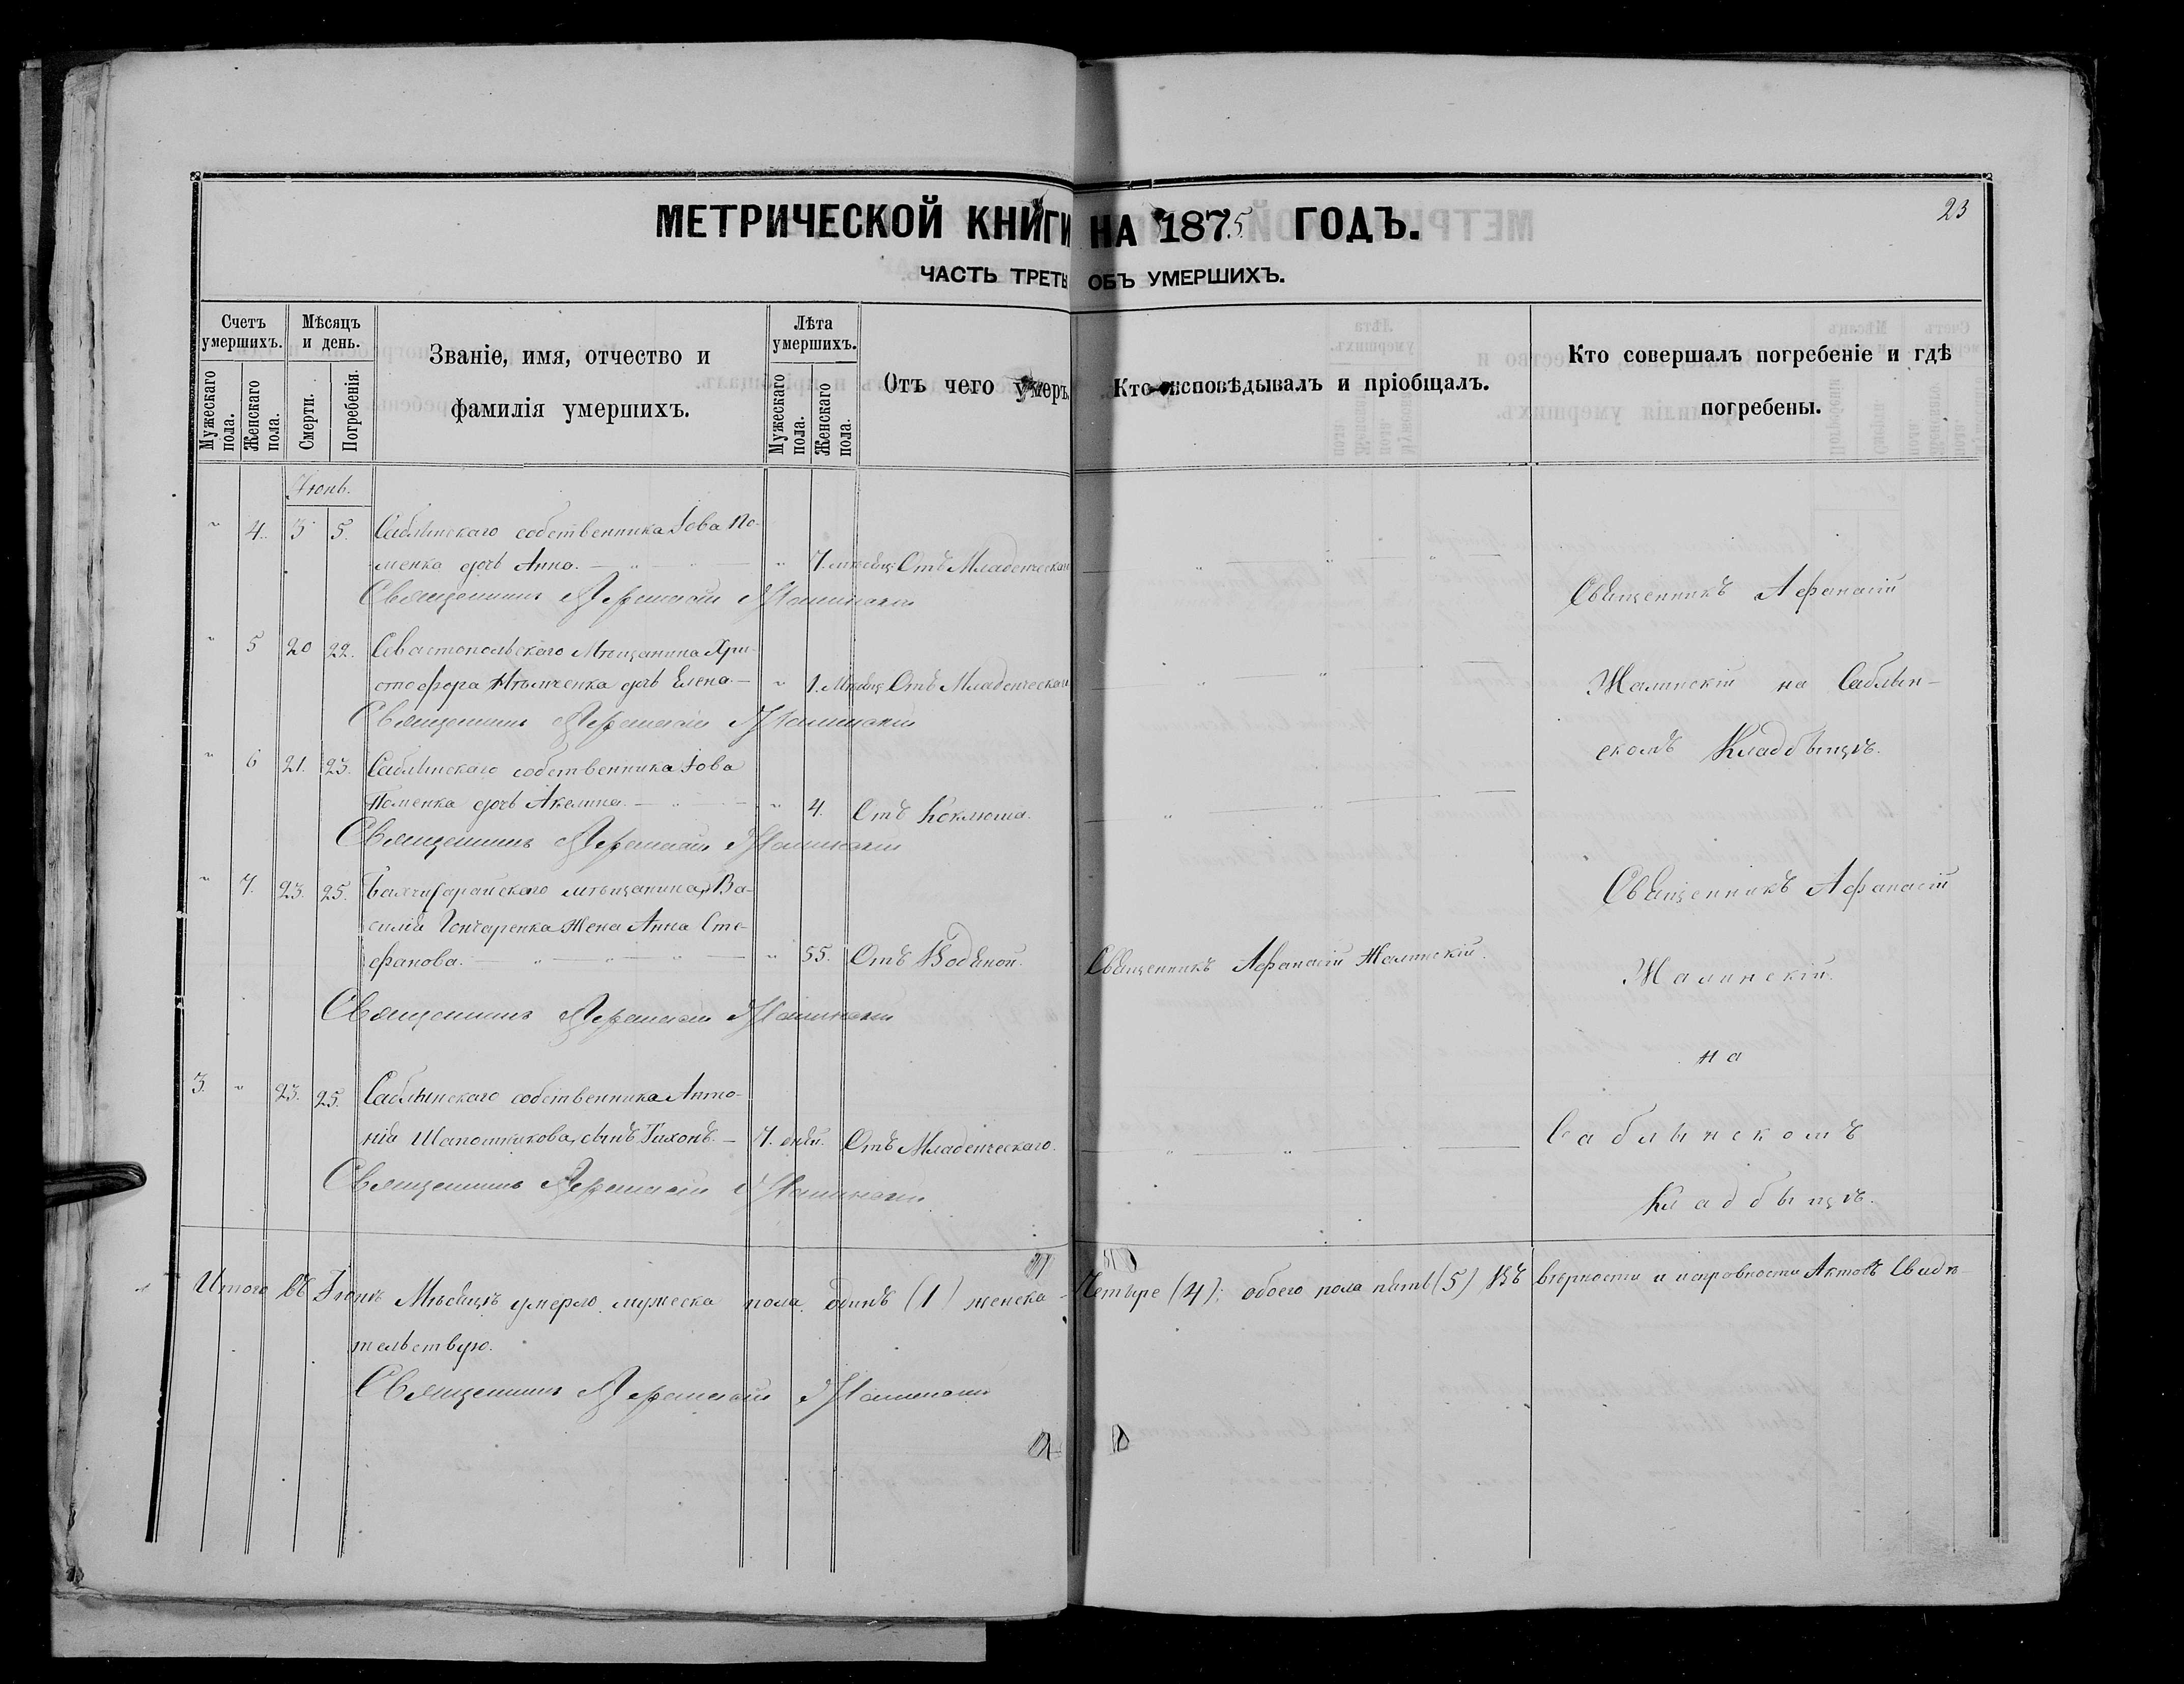 23
МЕТРИЧЕСКОЙ КНИГИ НА 1875 ГОДЪ.
ЧАСТЬ ТРЕТЬ ОБЪ УМЕРШИХЪ.
Счетъ умершихъ.
Мужескаго пола.
Женскаго пола.
Мѣсяцъ и день.
Смерти.
Погребенія.
Званіе, имя, отчество и
фамилія умершихъ.
Лѣта умершихъ.
Мужескаго пола.
Женскаго пола.
Отъ чего умеръ
Кто исповѣдывалъ и пріобщалъ.
Кто совершалъ погребеніе и гдѣ
погребены.
Іюнь.
" 4. 3 5. Саблынскаго собственника Іова По-
менка дочь Анна. " 7. мѣсяц. Отъ Младенческаго
Священникъ Афанасій Жалинскій
Священникъ Афанасій
" 5 20 22. Севастопольскаго Мѣщанина Хри-
стофора Нѣмченка дчь Елена. " 1. Мѣсяц. Отъ Младенческаго
Жалинскій на Саблын-
Священникъ Афанасій Жалинскій
скомъ Кладбищѣ.
" 6 21. 23. Саблынскаго собственника Іова
Поменка дочь Акелина. " 4. Отъ Коклюша.
Священникъ Афанасій Жалинскій
" 7. 23. 25. Бахчисарайскаго мѣщанина Ва-
Священникъ Афанасій
силія Гончаренка Жена Анна Сте-
фанова. " 55. Отъ Водяной. Священникъ Афанасій Жалинскій.
Жалинскій.
Священникъ Афанасій Жалинскій
на
3. " 23. 25. Саблынскаго собственника Анто-
нія Шапошникова, сынъ Тихонъ. 7. дній. Отъ Младенческаго.
Саблынскомъ
Священникъ Афанасій Жалинскій
Кладбищѣ.
Итого въ Іюнѣ Мѣсяцѣ умерло мужеска пола одинъ (1) женска Четыре (4); обоего пола пять (5) Въ вѣрности и исправности Актовъ Свидѣ-
тельствую.
Священникъ Афанасій Жалинскій